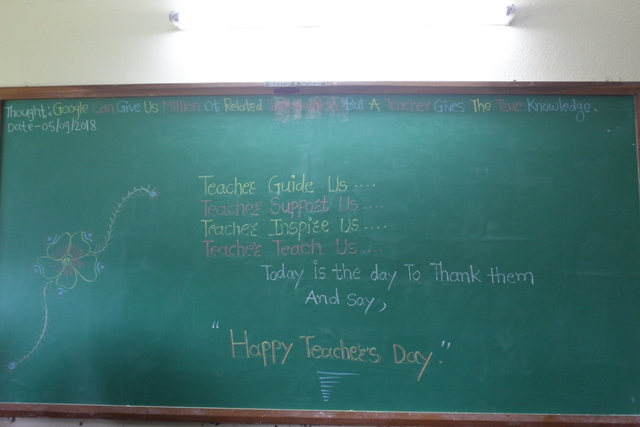 Thought: Google Can Give Us Million Of Related Information But A Teacher Gives The True Knowledge.
Date-05/09/2018
Teacher Guide Us ....
Teacher Support Us ....
Teacher Inspire Us ....
Teacher Teach Us ....
Today is the day To Thank them
And say,
"Happy Teacher's Day."